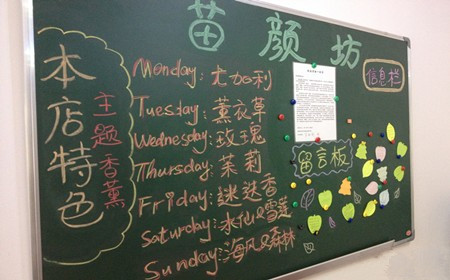 苗颜坊
本店特色
主题香薰
Monday: 尤加利
Tuesday: 薰衣草
Wednesday: 玫瑰
Thursday: 茉莉
Friday: 迷迭香
Saturday: 水仙&雪莲
Sunday: 海风&森林
信息栏
留言板